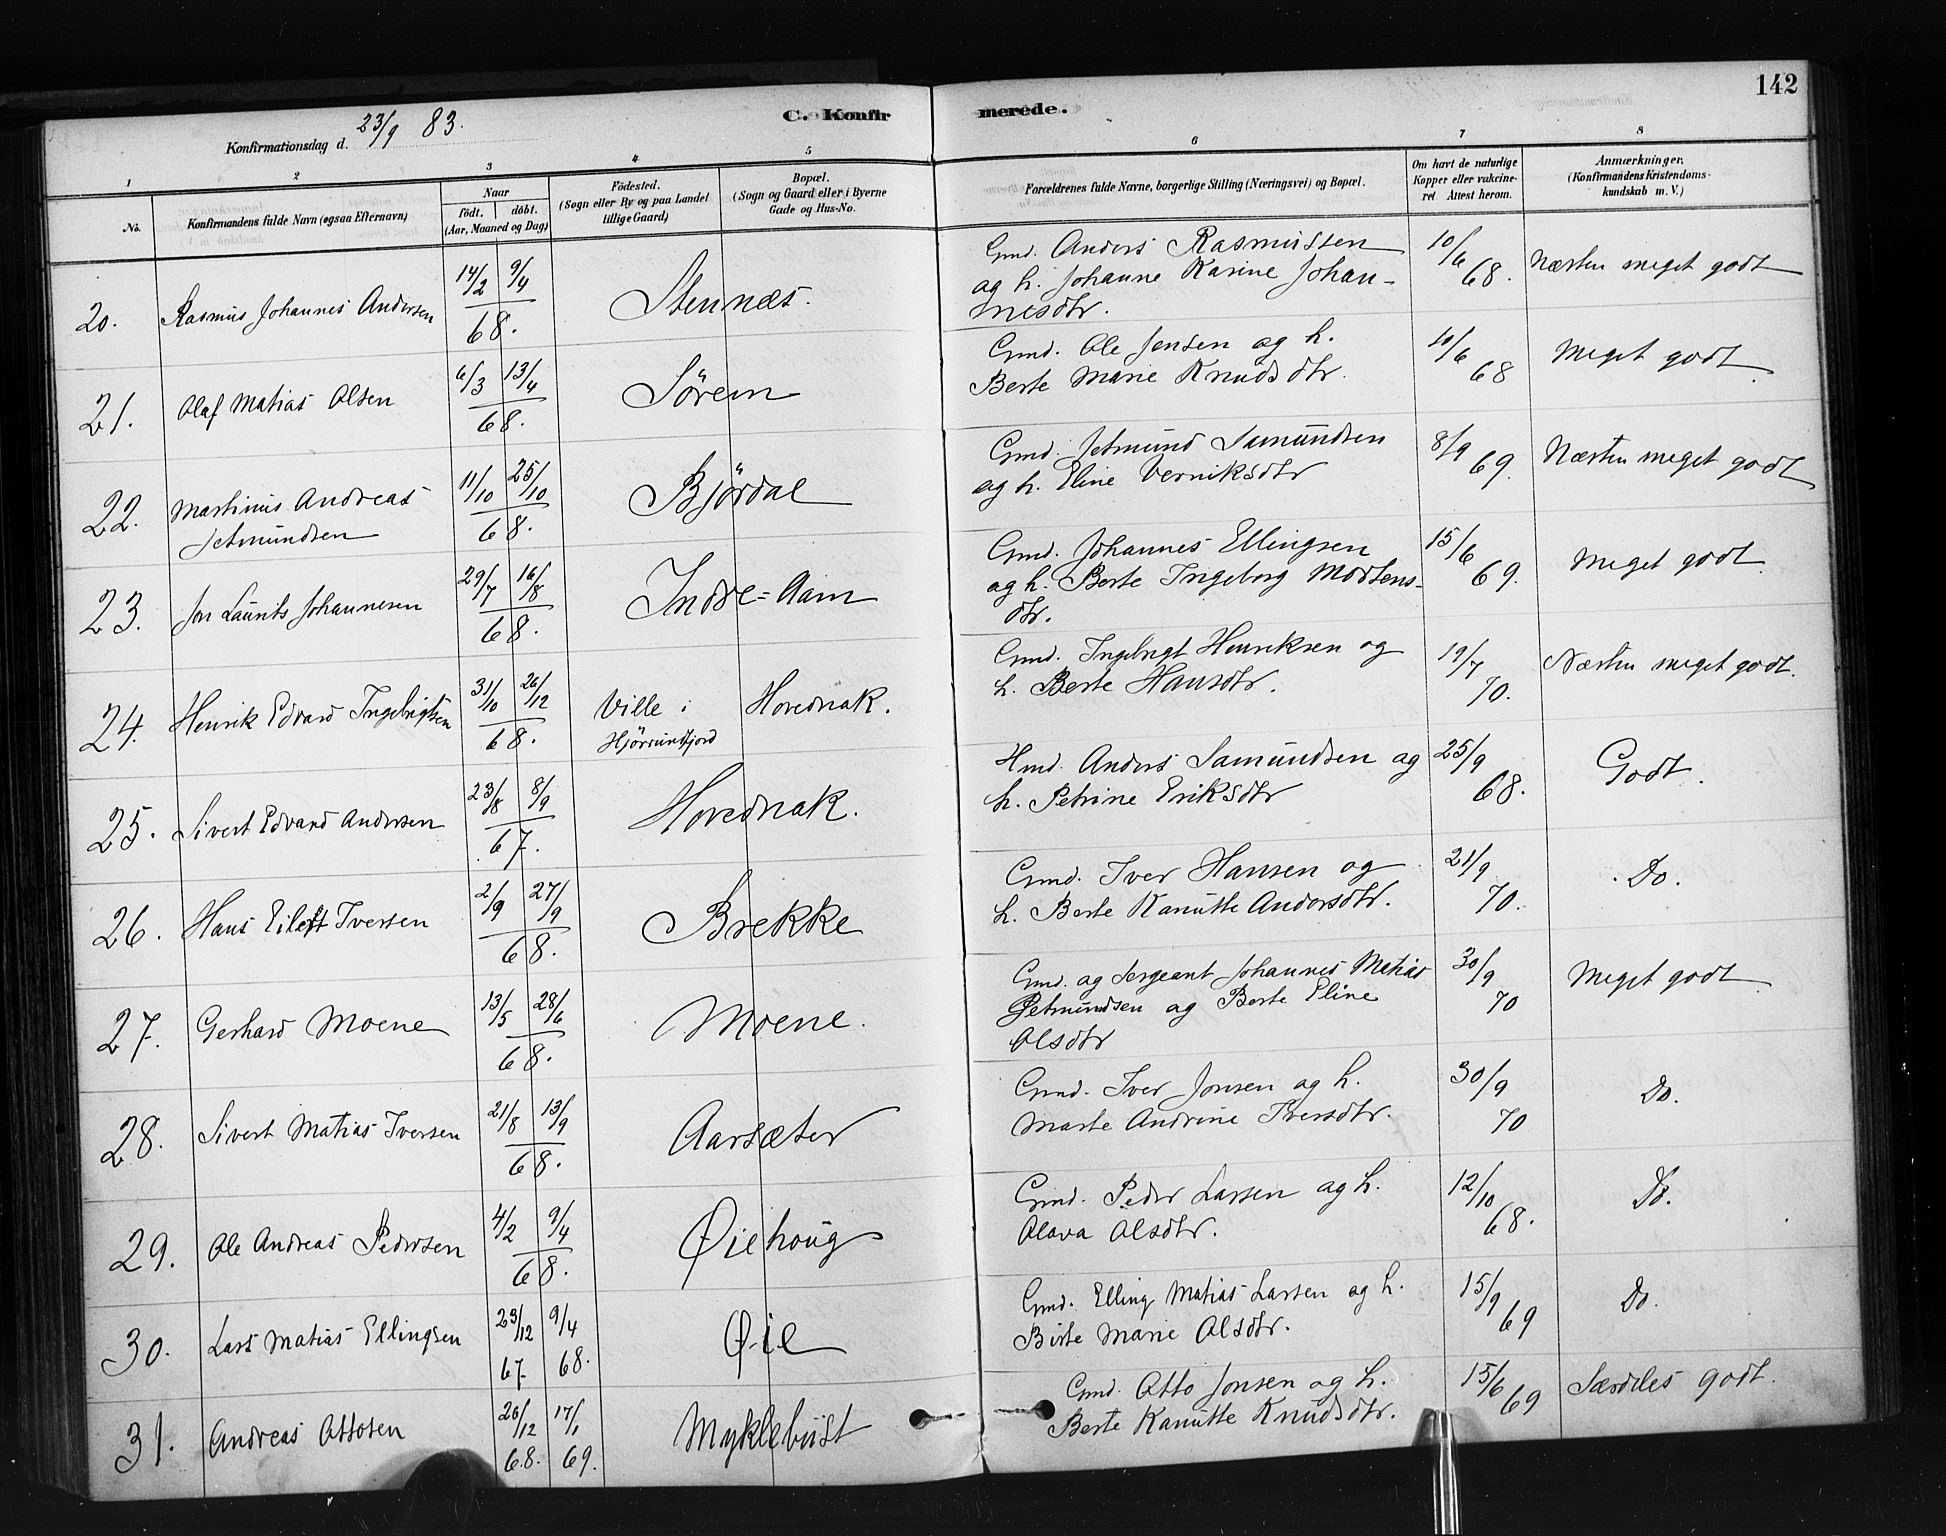 142
C. Konfirmerede.
Konfirmationsdag d. 23/9 83.
1 2 3 4 5 6 7 8
No.
Konfirmandens fulde Navn (ogsaa Efternavn)
Naar
födt. döbt.
(Aar, Maaned og Dag)
Födested.
(Sogn eller By og paa Landet
tillige Gaard)
Bopæl.
(Sogn og Gaard eller i Byerne
Gade og Hus-No.
Forældrenes fulde Navne, borgerlige Stilling (Næringsvei) og Bopæl.
Om havt de naturlige
Kopper eller vakcine-
ret Attest herom.
Anmærkninger.
(Konfirmandens Kristendoms-
kundskab m. V.)
20. Rasmus Johannes Andersen 14/2 9/4 68. Stennæs.
Gmd. Anders Rasmussen
og h. Johanne Karine Johan-
nesdtr.
10/6 68. Næsten meget godt
21. Olaf Matias Olsen 6/3 13/4 68. Sörem
Gmd. Ole Jensen og h.
Berte Marie Knudsdtr.
10/6 68 Meget godt.
22. Martinus Andreas
Jetmundsen
11/10 25/10 68. Björdal
Gmd. Jetmund Samundsen
og h. Eline Verniksdtr
8/9 69. Næsten meget godt
23. Jon Laurits Johannesen 29/7 16/8 68. Indre=Aam
Gmd. Johannes Ellingsen
og h. Berte Ingeborg Mortens-
dtr.
15/6 69. Meget godt
24. Henrik Edvard Ingebrigtsen 31/10 26/12 68. Ville i
Hjörrundfjord
Hovednak.
Gmd. Ingebrigt Henriksen og
h. Berte Hansdtr.
19/7 70. Næsten meget godt.
25. Sivert Edvard Andersen 23/8 8/9 67. Hovednak.
Hmd. Anders Samundsen og
h. Petrine Eriksdtr
25/9 68. Godt.
26. Hans Eilert Iversen 2/9 27/9 68. Brekke
Gmd. Iver Hansen og
h. Berte Kanutte Andersdtr.
21/9 70. Do.
27. Gerhard Moene 13/5 28/6 68. Moene.
Gmd. og Sergeant Johannes Matias
Jetmundsen og Berte Eline
Olsdtr
30/9 70 Meget godt.
28. Sivert Matias Iversen 21/8 13/9 68. Aarsæter
Gmd. Iver Jonsen og h.
Marte Andrine Iversdtr.
30/9 70 Do.
29. Ole Andreas Pedersen 4/2 9/4 68. Øiehoug
Gmd. Peder Larsen og h.
Olava Olsdtr.
12/10 68. Do.
30. Lars Matias Ellingsen 23/12 67. 9/4 68. Øie
Gmd. Elling Matias Larsen og h.
Birte Marie Olsdtr.
15/9 69 Do.
31. Andreas Ottosen 26/12 68. 17/1 69. Myklebust
Gmd. Otto Jonsen og h.
Berte Kanutte Knudsdtr.
15/6 69 Særdeles godt.